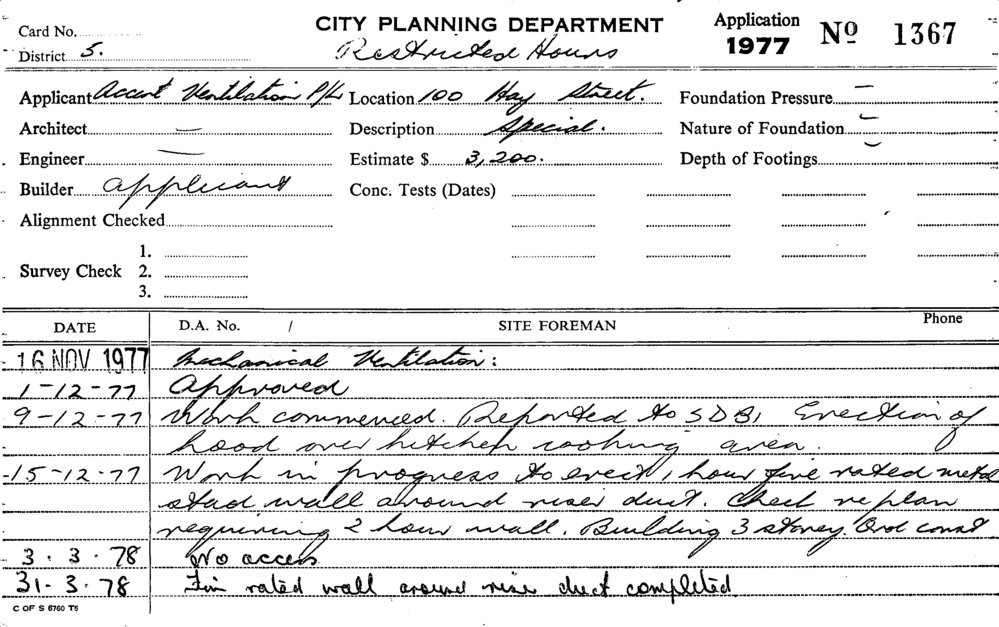 Card No.
CITY PLANNING DEPARTMENT
Application 1977 Nº 1367
District 5.
Restricted Hours
Applicant Accent Ventilation P/L Location 100 Hay Street. Foundation Pressure —
Architect — Description Special. Nature of Foundation —
Engineer — Estimate $ 3,200. Depth of Footings —
Builder applicant Conc. Tests (Dates)
Alignment Checked
1.
Survey Check 2.
3.
DATE D.A. No. / SITE FOREMAN Phone
16 NOV 1977 Mechanical Ventilation:
1-12-77 Approved
9-12-77 Work commenced. Reported to SDBI Erection of
hood over kitchen cooking area.
-15-12-77 Work in progress to erect 1 hour fire rated metal
stad wall around riser duct. Check re plan
requiring 2 hour wall. Building 3 storey. Ord const
3.3.78 No access
31-3.78 Fire rated wall around rise duct completed
C OF S 6760 T6